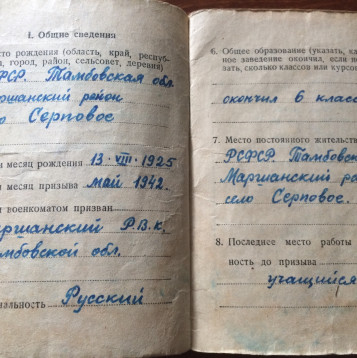 I. Общие сведения
сто рождения (область, край, респуб-
а, город, район, сельсовет, деревня)
ФСР. Тамбовская обл.
ршанский район
о Серповое
и месяц рождения 13·VIII·1925
и месяц призыва май 1942.
м военкоматом призван
аршанский Р.В.К.
амбовской обл.
альность Русский
6. Общее образование (указать, ка
ное заведение окончил, если не
зать, сколько классов или курсо
окончил 6 класс
7. Место постоянного жительства
РСФСР. Тамбовска
Маршанский ра
село Серповое.
8. Последнее место работы
ность до призыва
учащийся